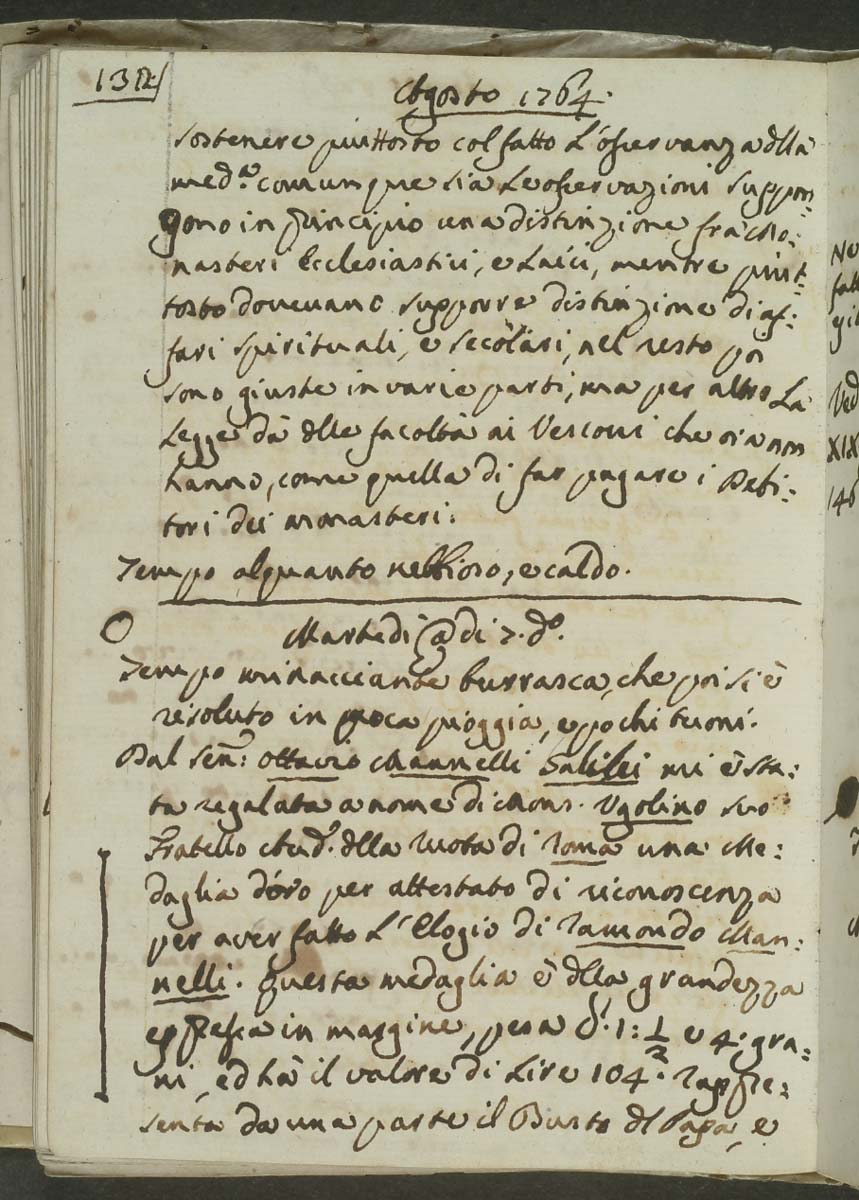 132
Agosto 1764.
sostenere piuttosto col fatto L'osservanza dlla
med.ª comunque sia Le osservazioni suppon=
gono in principio una distinzione fra Mo:
nasteri Ecclesiastici, e Laici, mentre piut=
tosto dovevano supporre distinzione di af:
fari spirituali, e secolari, nel resto poi
sono giuste in varie parti, ma per altro La
Legge dà dlle facoltà ai Vescovi che ora non
hanno, come quella di far pagare i Debi:
tori dei monasteri.
Tempo alquanto nebbioso, e caldo.
Martedi a di 7. dº.
Tempo minacciante burrasca, che poi si è
risoluto in poca pioggia, e pochi tuoni.
Dal Sen:: Ottavio Mannelli Galilei mi è sta:
ta regalata a nome di Mons. Ugolino suo
Fratello Aud.ʳ dlla Ruota di Roma una Me:
daglia d'oro per attestato di riconoscenza
per aver fatto L'Elogio di Ramondo Man:
nelli. Questa medaglia è dlla grandezza
espressa in margine, pesa d. 1: 1/2 e 4. gra:
ni, ed hà il valore di Lire 104. Rappre:
senta da una parte il Busto dl Papa, e
Ved
XIX